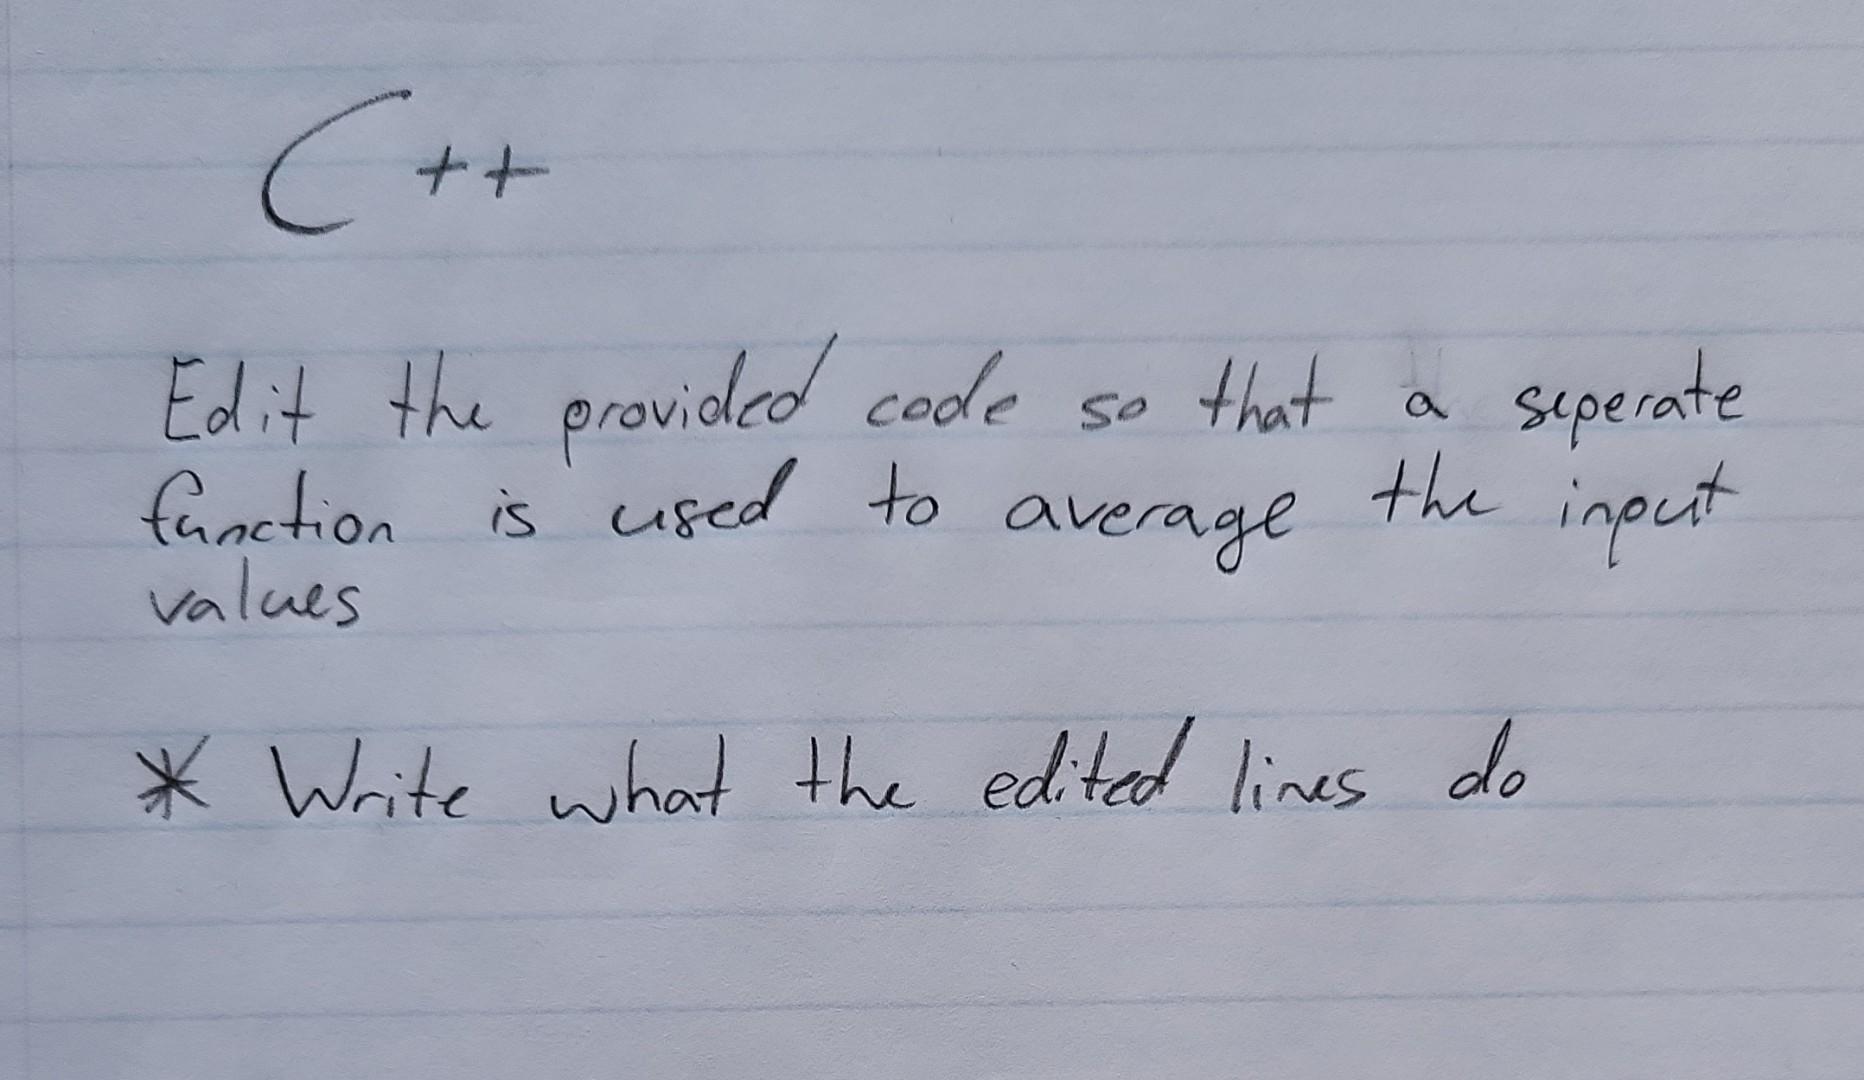 C++
Edit the provided code so that a seperate
function is used to average the input
values
* Write what the edited lines do